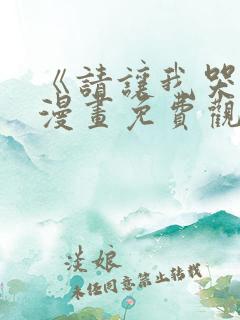 《請讓我哭
漫畫免費觀
淡娘
未经同意禁止转载